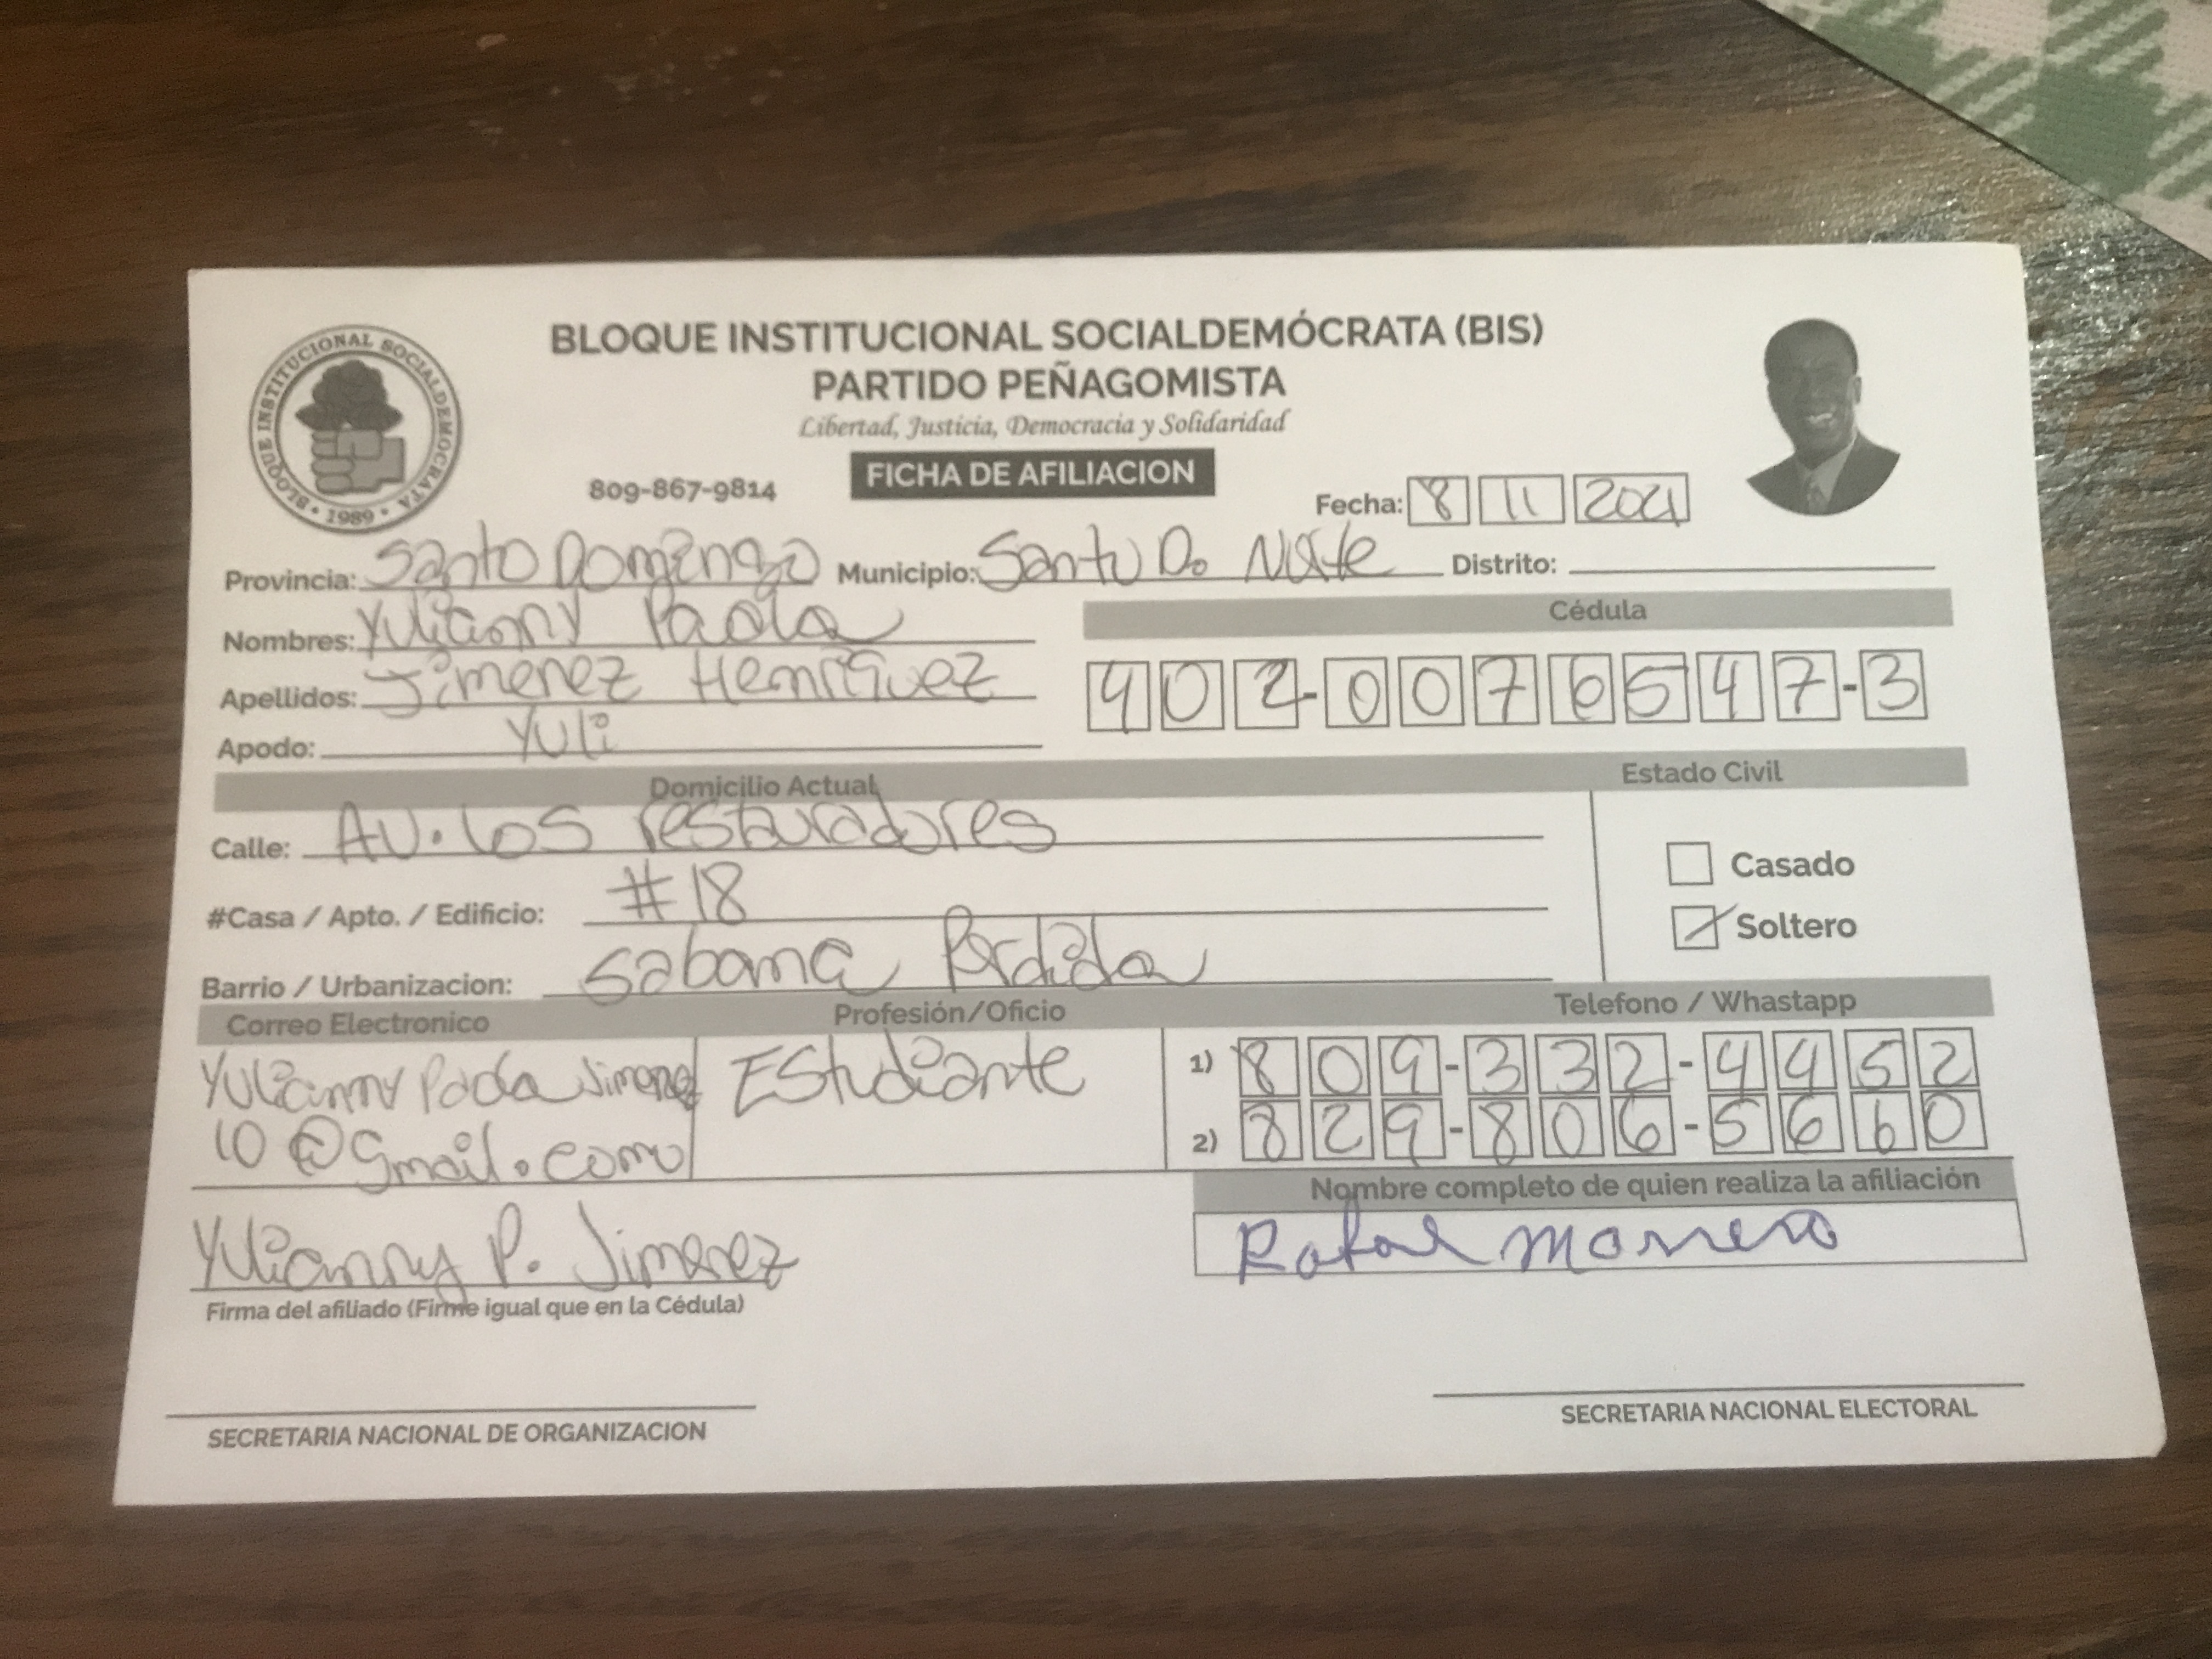 BLOQUE INSTITUCIONAL SOCIALDEMÓCRATA (BIS)
PARTIDO PEÑAGOMISTA
Libertad, Justicia, Democracia y Solidaridad
BLOQUE INSTITUCIONAL SOCIALDEMOCRATA • 1989 •
809-867-9814 FICHA DE AFILIACION
Fecha: 8 11 2021
Provincia: Santo Domingo Municipio: Santo Do Norte Distrito:
Nombres: Yulianny Paola
Cédula
Apellidos: Jimenez Henriquez
402-0076547-3
Apodo: Yuli
Domicilio Actual Estado Civil
Calle: AV. Los restauradores
Casado
#Casa / Apto. / Edificio: #18
Soltero
Barrio / Urbanizacion: Sabana Perdida
Correo Electronico Profesión/Oficio Telefono / Whastapp
Yulianny Paola Jimenez Estudiante 1) 809-332-4452
10@gmail.com 2) 829-806-5660
Nombre completo de quien realiza la afiliación
Yulianny P. Jimenez Rafael Marrero
Firma del afiliado (Firme igual que en la Cédula)
SECRETARIA NACIONAL DE ORGANIZACION SECRETARIA NACIONAL ELECTORAL